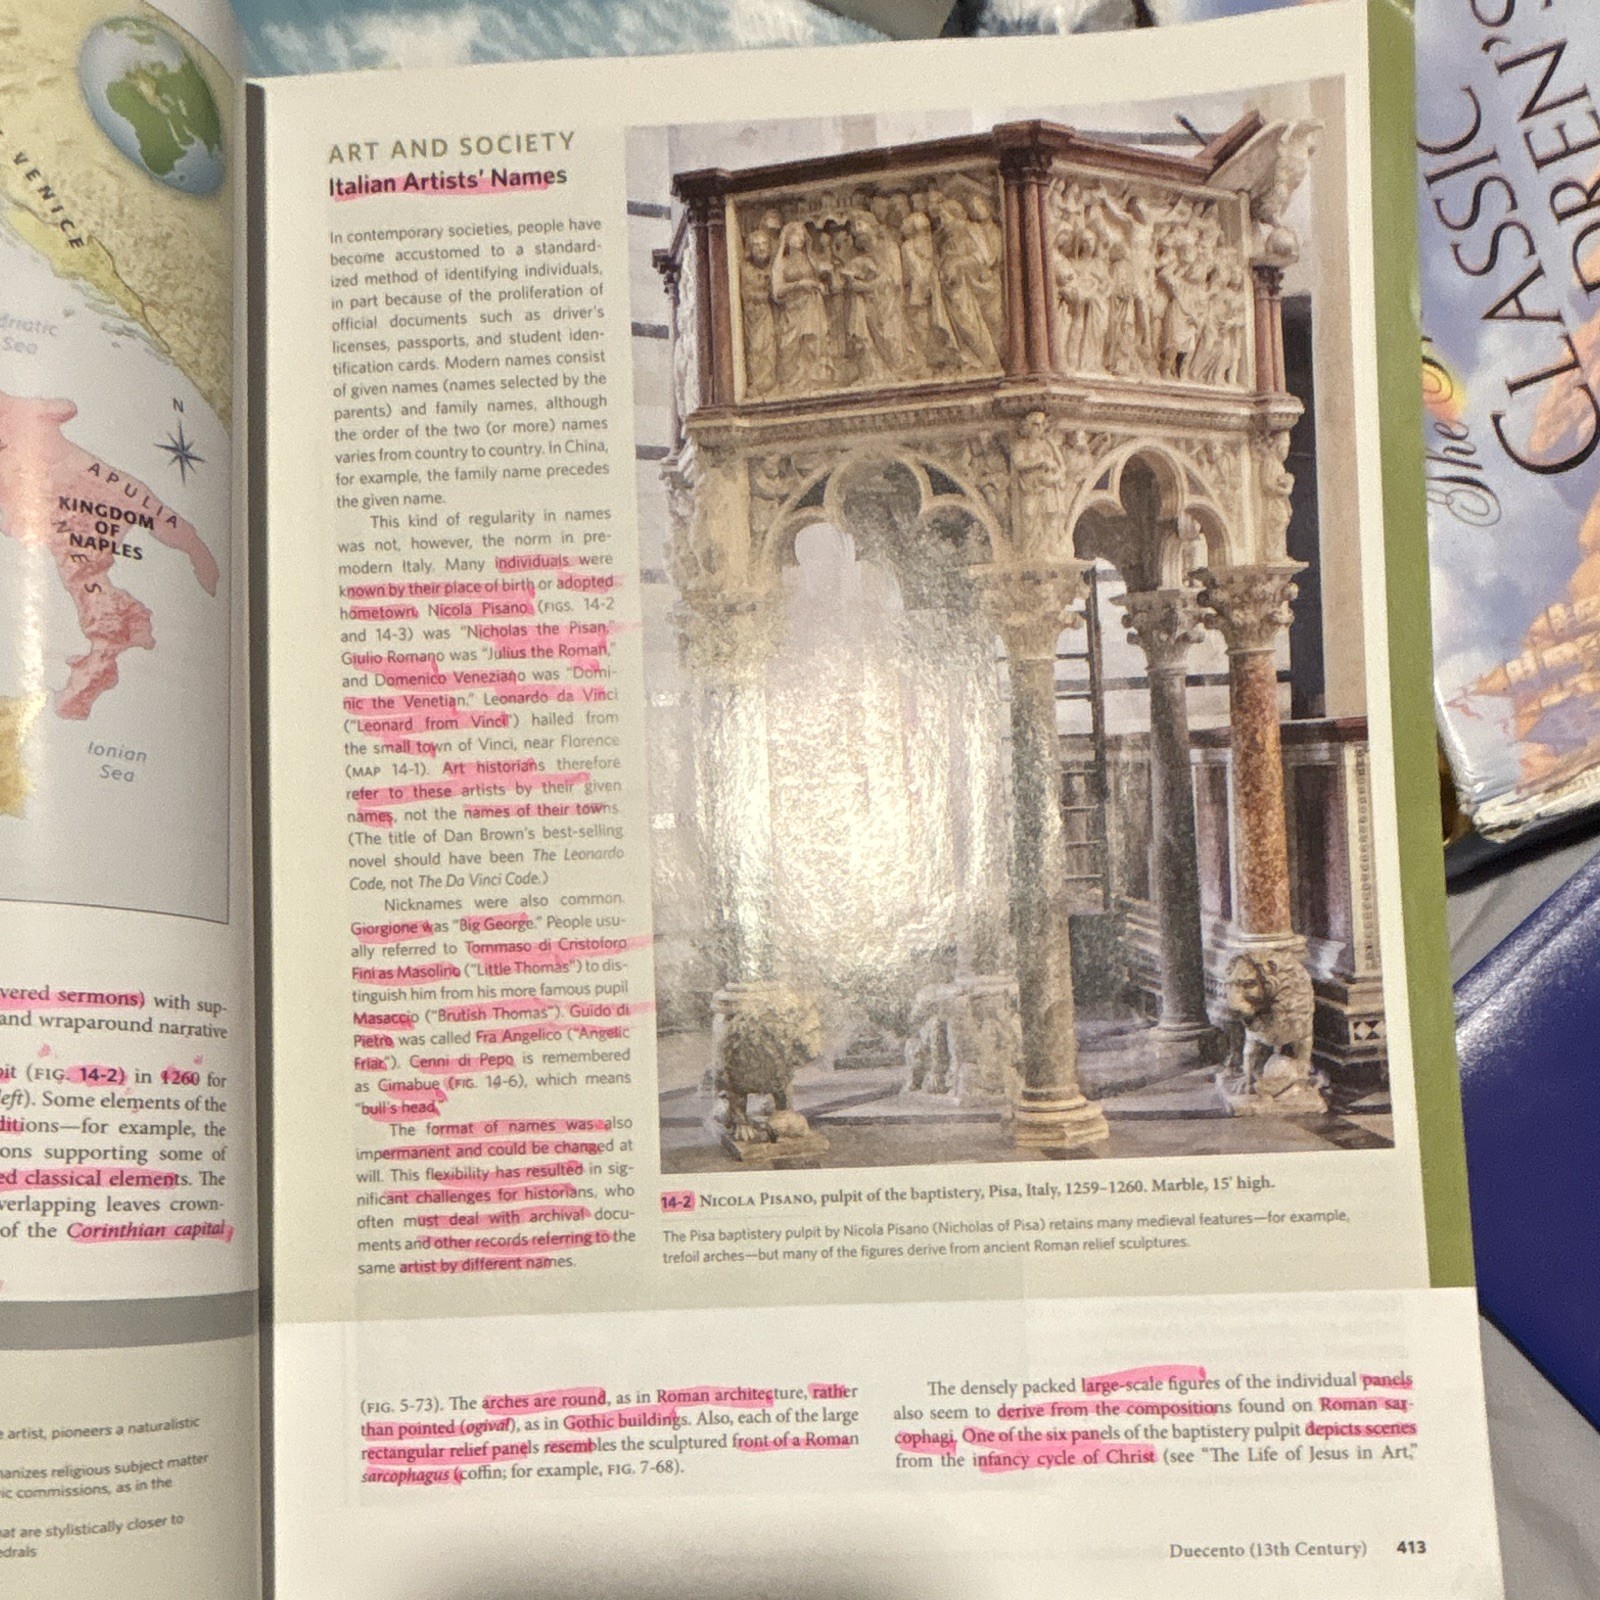 VENICE
driatic
Sea
N
APULIA
KINGDOM
OF
NAPLES
Ionian
Sea
vered sermons) with sup-
and wraparound narrative
pit (FIG. 14-2) in 1260 for
left). Some elements of the
ditions—for example, the
ons supporting some of
ed classical elements. The
verlapping leaves crown-
of the Corinthian capital
e artist, pioneers a naturalistic
manizes religious subject matter
ic commissions, as in the
hat are stylistically closer to
edrals
ART AND SOCIETY
Italian Artists' Names
In contemporary societies, people have
become accustomed to a standard-
ized method of identifying individuals,
in part because of the proliferation of
official documents such as driver's
licenses, passports, and student iden-
tification cards. Modern names consist
of given names (names selected by the
parents) and family names, although
the order of the two (or more) names
varies from country to country. In China,
for example, the family name precedes
the given name.
This kind of regularity in names
was not, however, the norm in pre-
modern Italy. Many individuals were
known by their place of birth or adopted
hometown. Nicola Pisano (FIGS. 14-2
and 14-3) was "Nicholas the Pisan,"
Giulio Romano was "Julius the Roman,"
and Domenico Veneziano was "Domi-
nic the Venetian." Leonardo da Vinci
("Leonard from Vinci") hailed from
the small town of Vinci, near Florence
(MAP 14-1). Art historians therefore
refer to these artists by their given
names, not the names of their towns.
(The title of Dan Brown's best-selling
novel should have been The Leonardo
Code, not The Da Vinci Code.)
Nicknames were also common.
Giorgione was "Big George." People usu-
ally referred to Tommaso di Cristoforo
Fini as Masolino ("Little Thomas") to dis-
tinguish him from his more famous pupil
Masaccio ("Brutish Thomas"). Guido di
Pietro was called Fra Angelico ("Angelic
Friar"). Cenni di Pepo is remembered
as Cimabue (FIG. 14-6), which means
"bull's head."
The format of names was also
impermanent and could be changed at
will. This flexibility has resulted in sig-
nificant challenges for historians, who
often must deal with archival docu-
ments and other records referring to the
same artist by different names.
14-2 NICOLA PISANO, pulpit of the baptistery, Pisa, Italy, 1259–1260. Marble, 15' high.
The Pisa baptistery pulpit by Nicola Pisano (Nicholas of Pisa) retains many medieval features—for example,
trefoil arches—but many of the figures derive from ancient Roman relief sculptures.
(FIG. 5-73). The arches are round, as in Roman architecture, rather
than pointed (ogival), as in Gothic buildings. Also, each of the large
rectangular relief panels resembles the sculptured front of a Roman
sarcophagus (coffin; for example, FIG. 7-68).
The densely packed large-scale figures of the individual panels
also seem to derive from the compositions found on Roman sar-
cophagi. One of the six panels of the baptistery pulpit depicts scenes
from the infancy cycle of Christ (see "The Life of Jesus in Art,"
Duecento (13th Century) 413
The
CLASSIC